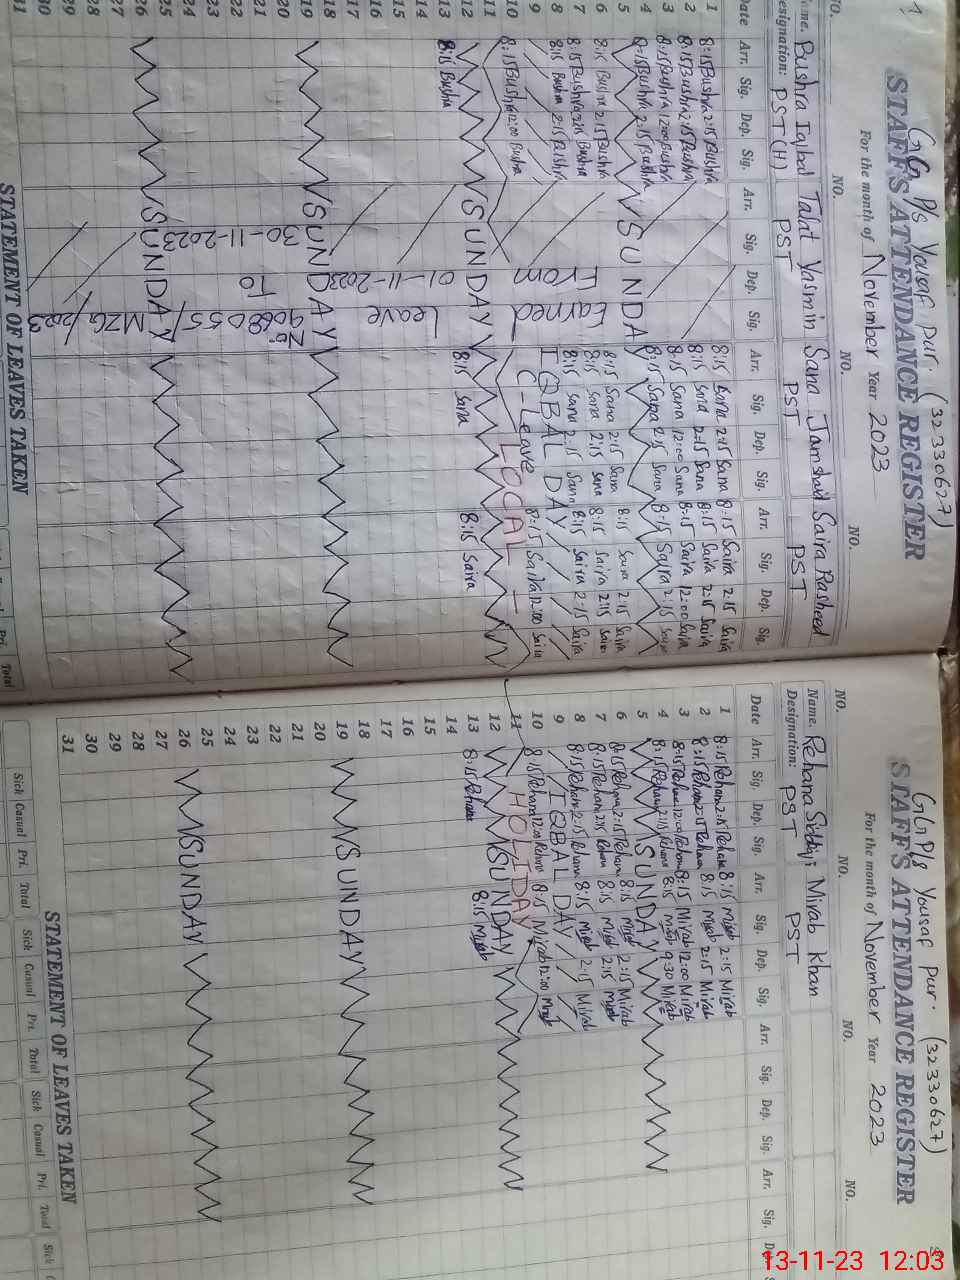 GG P/s Yousaf Pur. (32330627)
STAFF'S ATTENDANCE REGISTER
For the month of November Year 2023
NO. NO. NO. NO.
Name. Bushra Iqbal Talat Yasmin Sana Jamshaid Saira Rasheed
Designation: PST(H) PST PST PST
Date Arr. Sig. Dep. Sig. Arr. Sig. Dep. Sig. Arr. Sig. Dep. Sig. Arr. Sig. Dep. Sig.
1 8:15 Bushra 2:15 Bushra 8:15 Sana 2:15 Sana 8:15 Saira 2:15 Saira
2 8:15 Bushra 2:15 Bushra 8:15 Sana 2:15 Sana 8:15 Saira 2:15 Saira
3 8:15 Bushra 12:00 Bushra 8:15 Sana 12:00 Sana 8:15 Saira 12:00 Saira
4 8:15 Bushra 2:15 Bushra 8:15 Sana 2:15 Sana 8:15 Saira 2:15 Saira
5 SUNDAY
6 8:15 Bushra 2:15 Bushra Earned 8:15 Sana 2:15 Sana 8:15 Saira 2:15 Saira
7 8:15 Bushra 2:15 Bushra 8:15 Sana 2:15 Sana 8:15 Saira 2:15 Saira
8 8:15 Bushra 2:15 Bushra From 8:15 Sana 2:15 Sana 8:15 Saira 2:15 Saira
9 IQBAL DAY
10 8:15 Bushra 12:00 Bushra C-Leave 8:15 Saira 12:00 Saira
11 LOCAL -
12 SUNDAY
13 8:15 Bushra 01-11-2023 8:15 Sana 8:15 Saira
14 Leave
15
16
17
18
19 SUNDAY
20 No 9068055/MZG/2023
21 To
22 30-11-2023
23
24
25
26 SUNDAY
27
28
29
30
31
STATEMENT OF LEAVES TAKEN
Pri. Total
GGP/s Yousaf Pur. (32330627)
STAFF'S ATTENDANCE REGISTER
For the month of November Year 2023
NO. NO. NO. NO.
Name. Rehana Mirab Khan
Designation: PST PST
Date Arr. Sig. Dep. Sig. Arr. Sig. Dep. Sig. Arr. Sig. Dep. Sig. Arr. Sig.
1 8:15 Rehana 2:15 Rehana 8:15 Mirab 2:15 Mirab
2 8:15 Rehana 2:15 Rehana 8:15 Mirab 2:15 Mirab
3 8:15 Rehana 12:00 Rehana 8:15 Mirab 12:00 Mirab
4 8:15 Rehana 2:15 Rehana 8:15 Mirab 9:30 Mirab
5 SUNDAY
6 8:15 Rehana 2:15 Rehana 8:15 Mirab 2:15 Mirab
7 8:15 Rehana 2:15 Rehana 8:15 Mirab 2:15 Mirab
8 8:15 Rehana 2:15 Rehana 8:15 Mirab 2:15 Mirab
9 IQBAL DAY
10 8:15 Rehana 12:00 Rehana 8:15 Mirab 12:00 Mirab
11 HOLIDAY
12 SUNDAY
13 8:15 Rehana 8:15 Mirab
14
15
16
17
18
19 SUNDAY
20
21
22
23
24
25
26 SUNDAY
27
28
29
30
31
STATEMENT OF LEAVES TAKEN
Sick Casual Pri. Total Sick Casual Pri. Total Sick Casual Pri. Total Sick
13-11-23 12:03